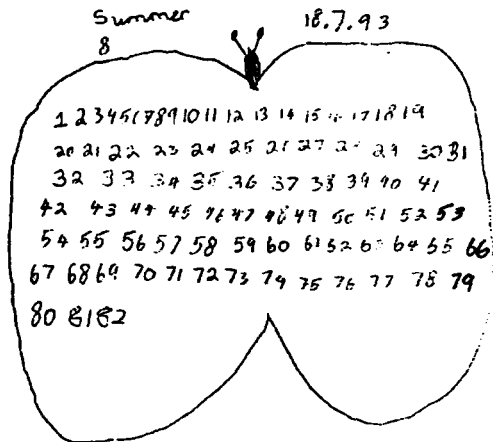 Summer 18.7.93
8
1 2 3 4 5 6 7 8 9 10 11 12 13 14 15 16 17 18 19
20 21 22 23 24 25 26 27 28 29 30 31
32 33 34 35 36 37 38 39 40 41
42 43 44 45 46 47 48 49 50 51 52 53
54 55 56 57 58 59 60 61 52 63 64 65 66
67 68 69 70 71 72 73 74 75 76 77 78 79
80 81 82